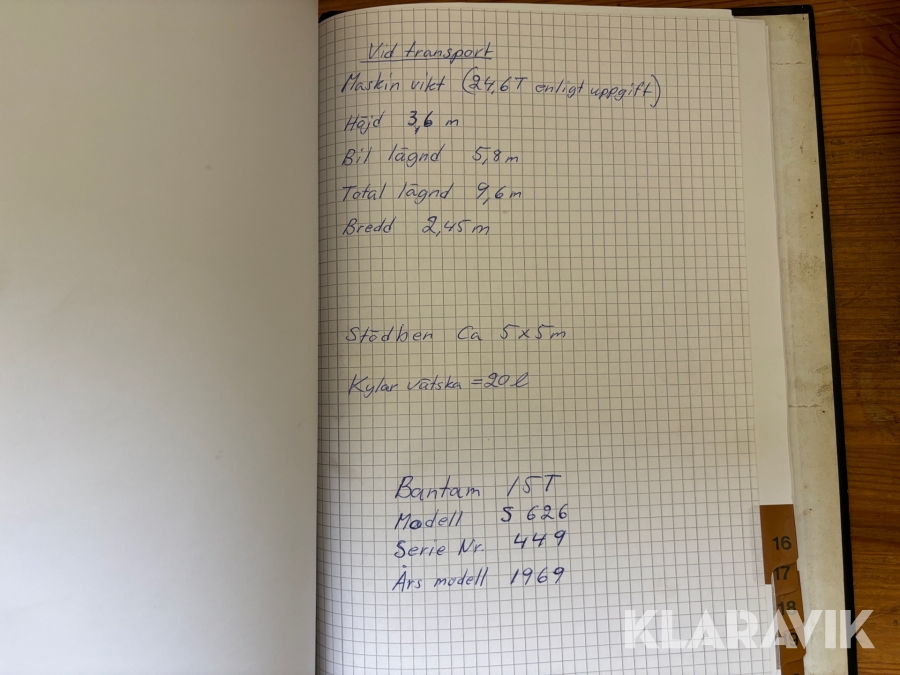 Vid transport
Maskin vikt (24,6T enligt uppgift)
Höjd 3,6 m
Bil lägnd 5,8 m
Total lägnd 9,6 m
Bredd 2,45 m
Stödben Ca 5x5 m
Kylar vätska = 20 l
Bantam 15T
Modell S 626
Serie Nr. 449
Års modell 1969
16
17
18
KLARAVIK